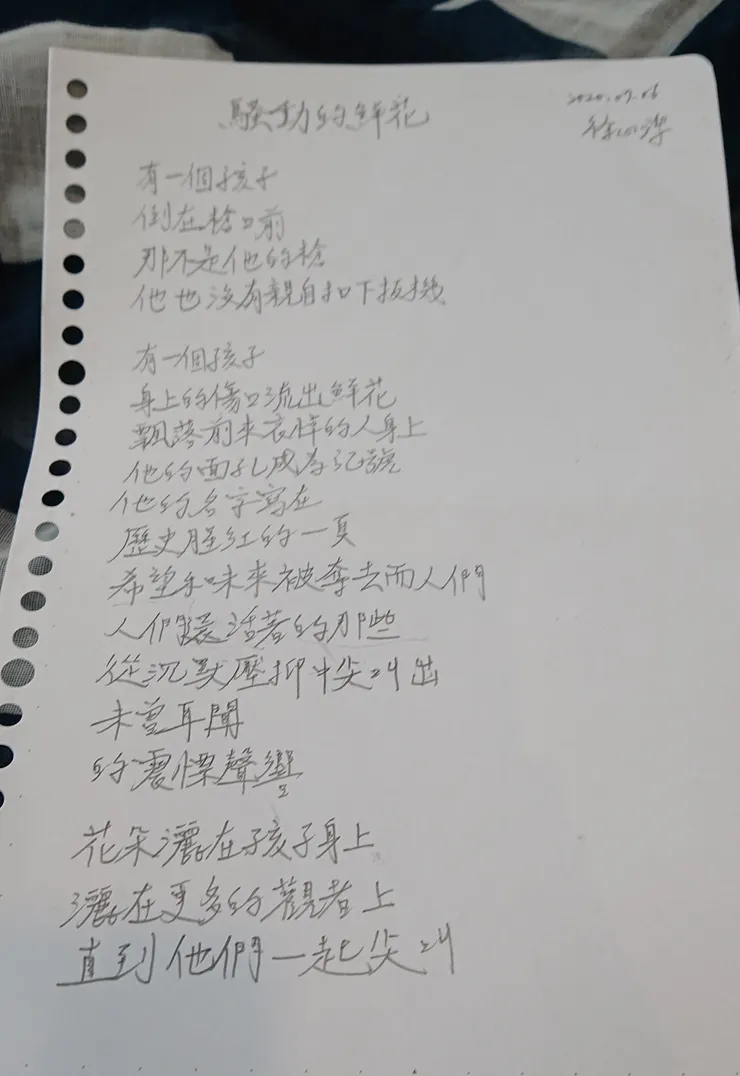 騷動的鮮花
2020.07.06
徐心潔
有一個孩子
倒在槍口前
那不是他的槍
他也沒有親自扣下扳機
有一個孩子
身上的傷口流出鮮花
飄落前來哀悼的人身上
他的面孔成為記號
他的名字寫在
歷史腥紅的一頁
希望和味來被奪去而人們
人們讓活著的那些
從沉默壓抑中尖叫出
未曾耳聞
的震慄聲響
花朵灑在孩子身上
灑在更多的觀者上
直到他們一起尖叫